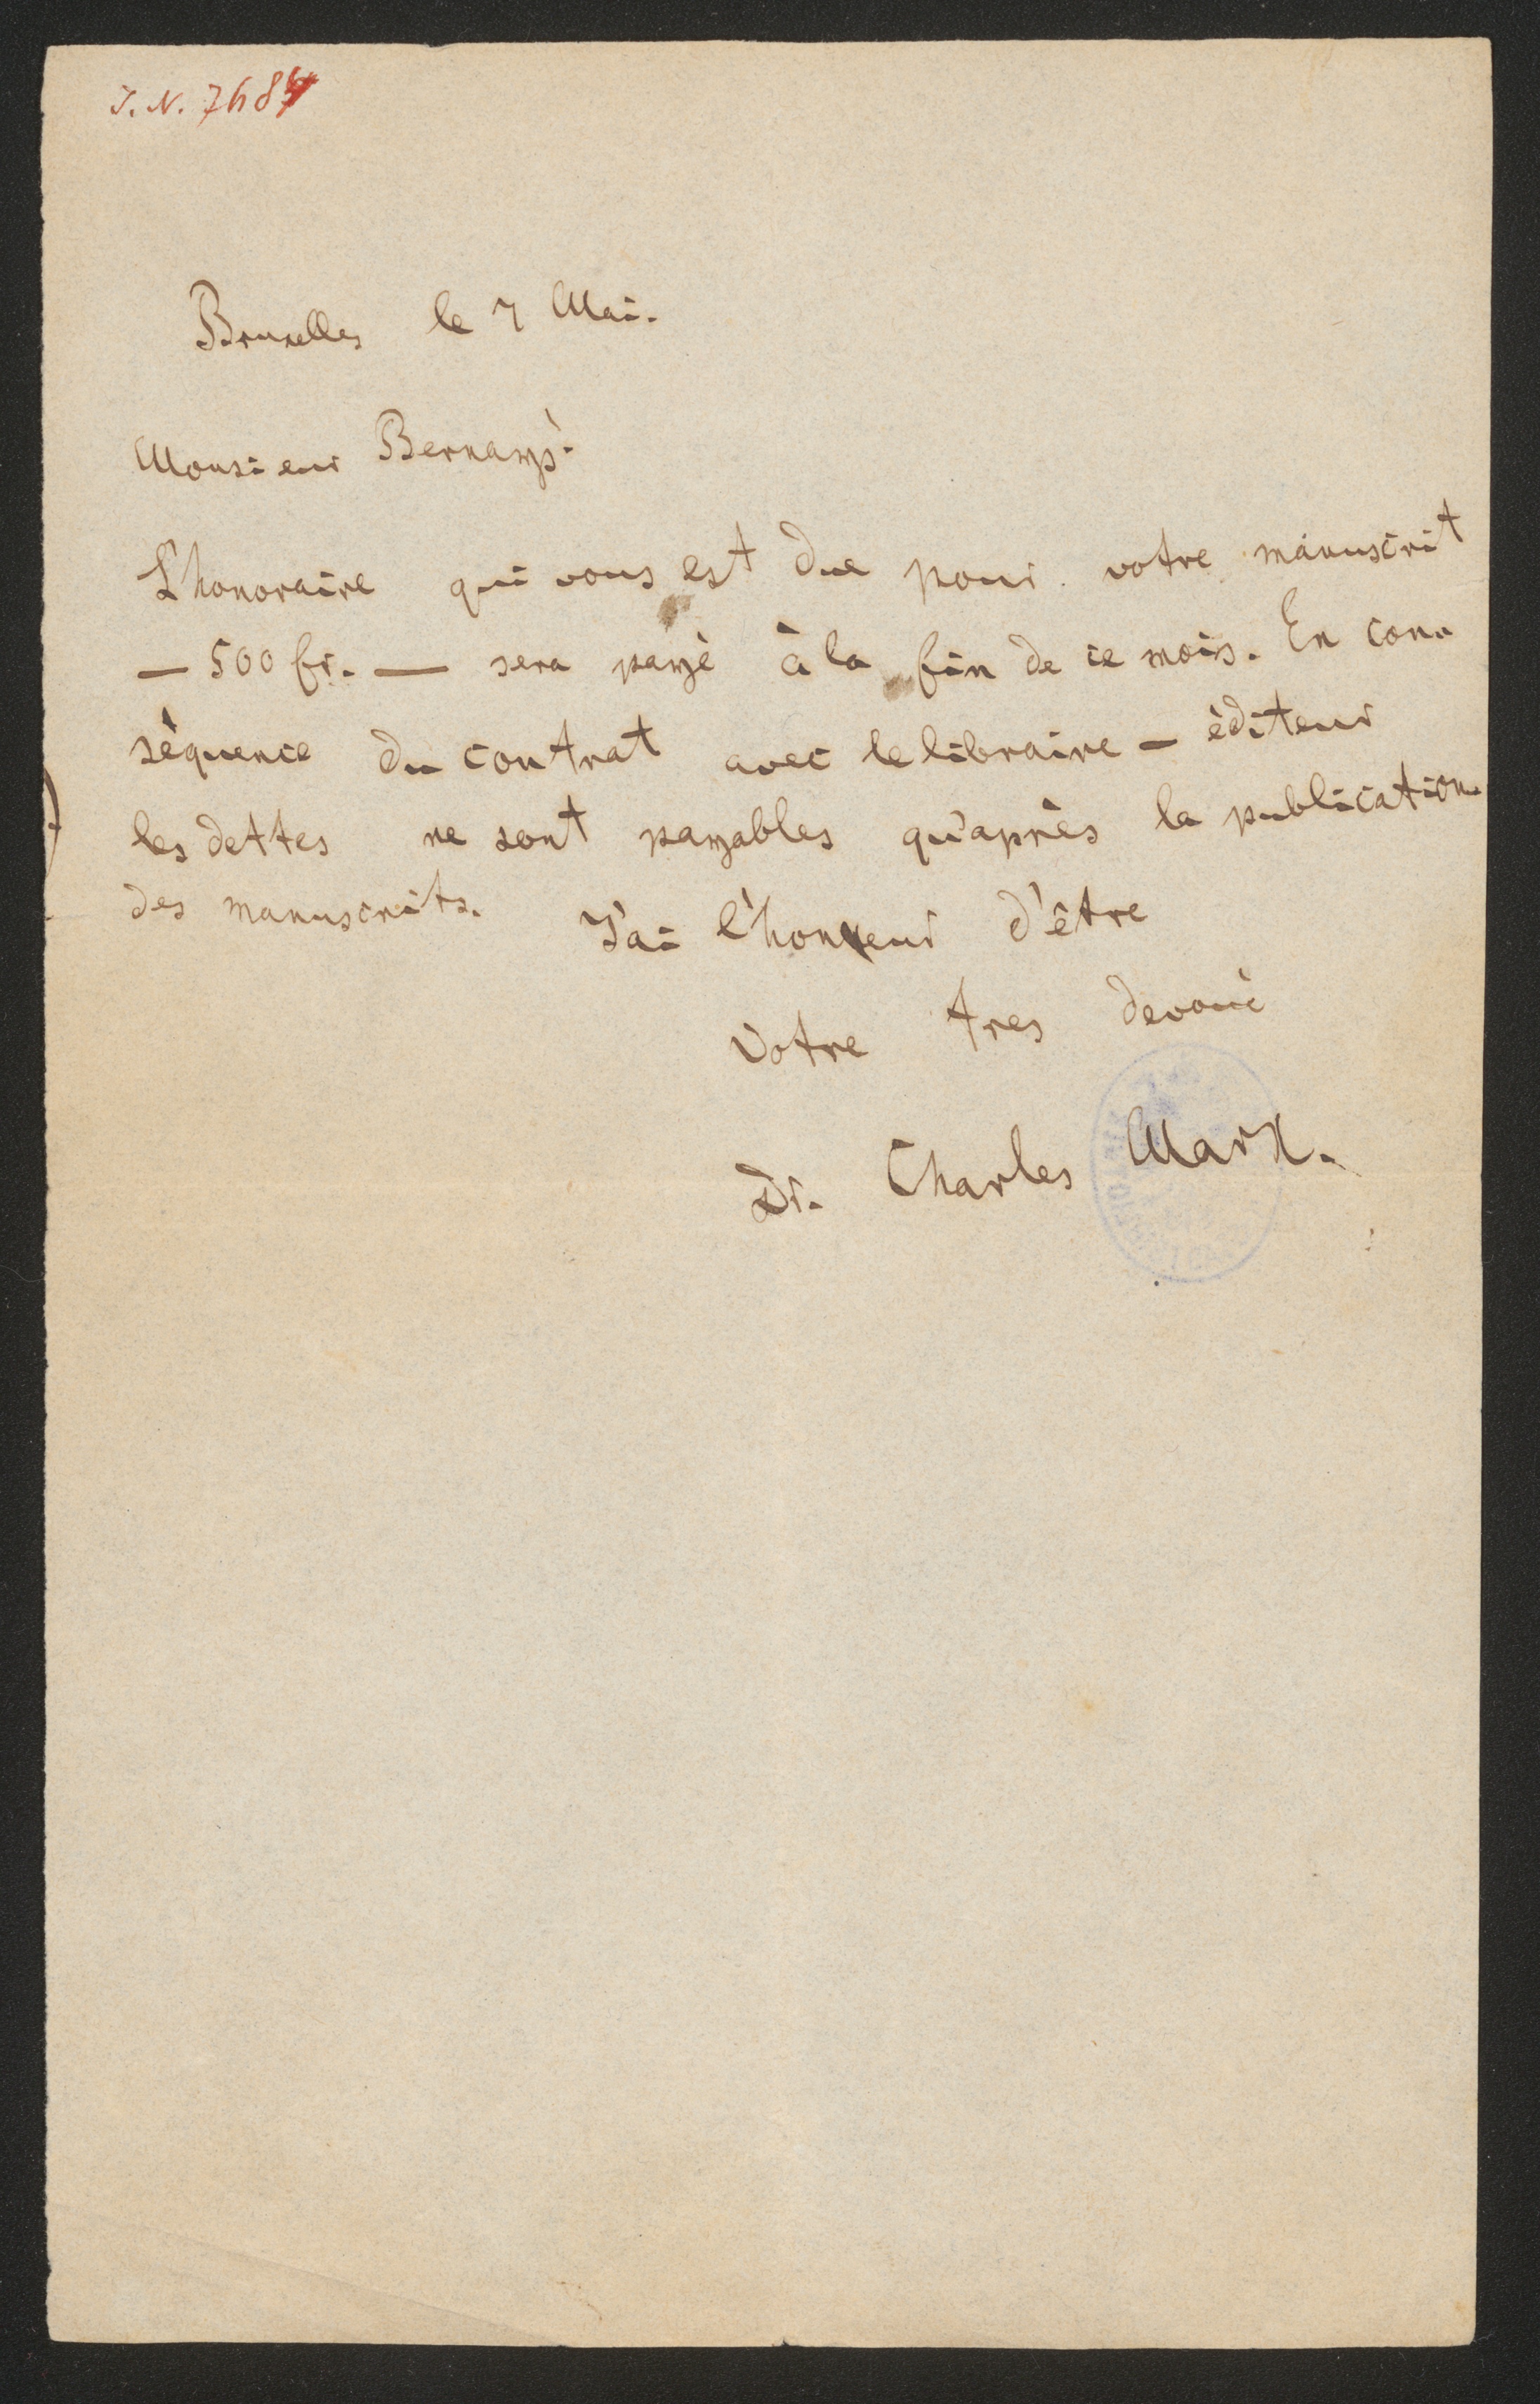 J. N. 7684
Bruxelles le 7 Mai.
Monsieur Bernays!
L'honoraire qui vous est due pour votre manuscrit
— 500 fr. — sera payé à la fin de ce mois. En con-
séquence du contrat avec le libraire - éditeur
les dettes ne sont payables qu'après la publication
des manuscrits.
J'ai l'honneur d'être
Votre tres devoué
Dr. Charles Marx.